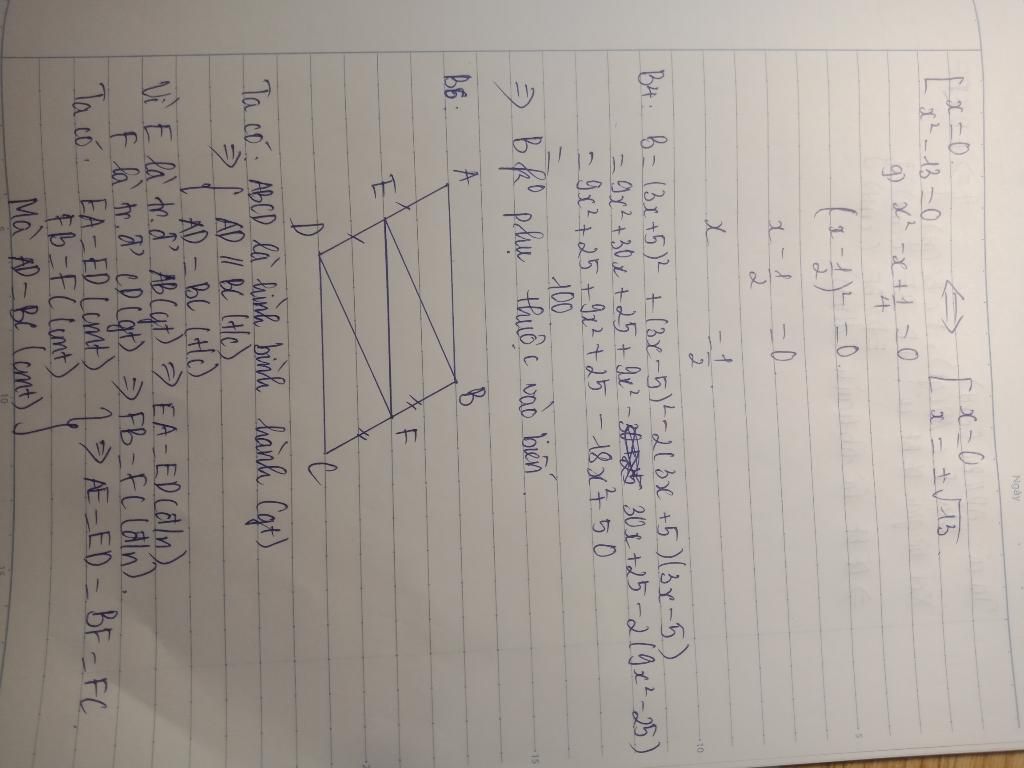 [ x = 0
[ x² - 13 = 0 ⟺ [ x = 0
[ x = ± √13
g) x² - x + 1/4 = 0
(x - 1/2)² = 0
x - 1/2 = 0
x = 1/2
B4: B = (3x + 5)² + (3x - 5)² - 2(3x + 5)(3x - 5)
= 9x² + 30x + 25 + 9x² - 30x + 25 - 2(9x² - 25)
= 9x² + 25 + 9x² + 25 - 18x² + 50
= 100
⇒ B ko phụ thuộc vào biến.
B5:
A B
E F
D C
Ta có: ABCD là hình bình hành (gt)
⇒ { AD // BC (t/c)
{ AD = BC (t/c)
Vì E là tr.đ' AB (gt) ⇒ EA = ED (đ/n)
F là tr.đ' CD (gt) ⇒ FB = FC (đ/n).
Ta có: EA = ED (cmt)
FB = FC (cmt) } ⇒ AE = ED = BF = FC
Mà AD = BC (cmt)
Ngày
5
10
15